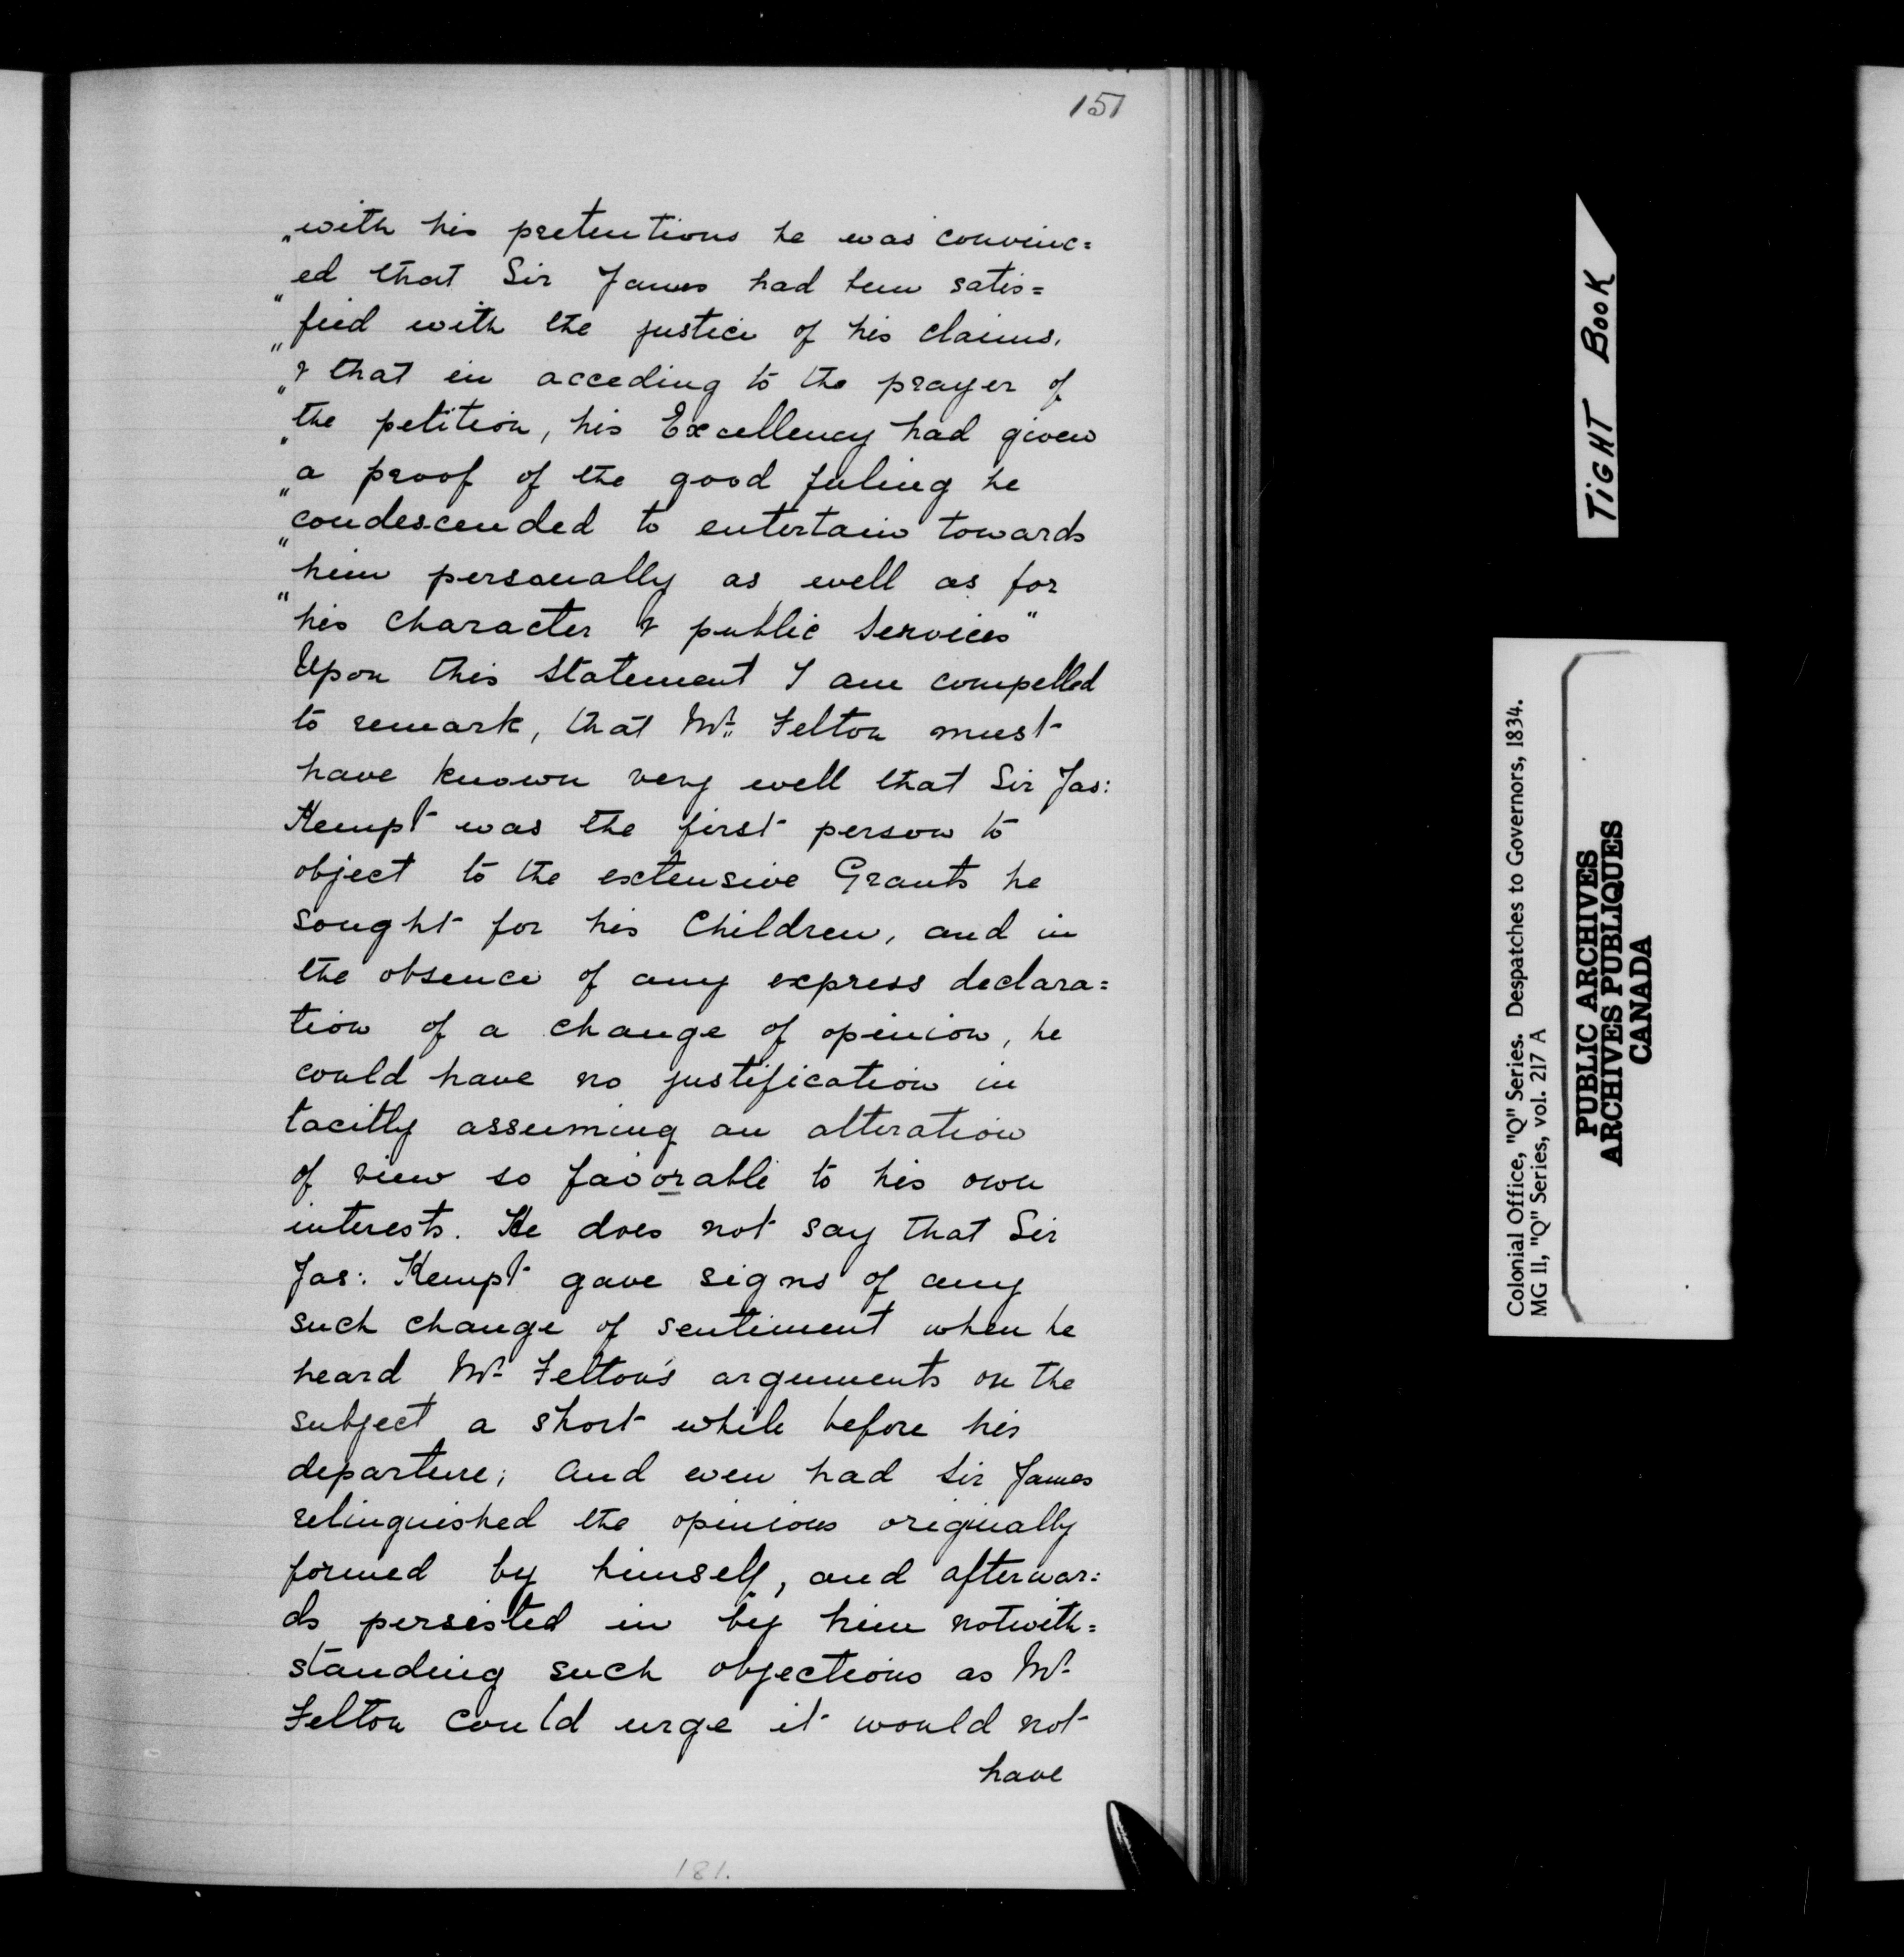 151
"with his pretentions he was convinc=
"ed that Sir James had been satis=
"fied with the justice of his claims.
"& that in acceding to the prayer of
"the petition, his Excellency had given
"a proof of the good feeling he
"condescended to entertain towards
"him personally as well as for
his character & public Services"
Upon this Statement I am compelled
to remark, that Mr. Felton must
have known very well that Sir Jas:
Kempt was the first person to
object to the extensive Grants he
sought for his Children, and in
the absence of any express declara=
tion of a change of opinion, he
could have no justification in
tacitly assuming an alteration
of view so favorable to his own
interests. He does not say that Sir
Jas: Kempt gave signs of any
such change of sentiment when he
heard Mr. Felton's arguments on the
subject a short while before his
departure; and even had Sir James
relinquished the opinions originally
formed by himself, and afterwar=
ds persisted in by him notwith=
standing such objections as Mr.
Felton could urge it would not
have
181.
TIGHT BOOK
Colonial Office, "Q" Series. Despatches to Governors, 1834.
MG 11, "Q" Series, vol. 217 A
PUBLIC ARCHIVES
ARCHIVES PUBLIQUES
CANADA